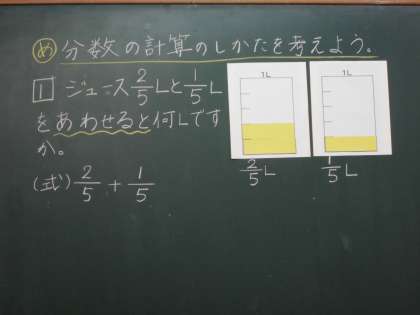 め 分数の計算のしかたを考えよう。
1 ジュース2/5Lと1/5L
をあわせると何Lです
か。
(式) 2/5 + 1/5
1L
2/5L
1L
1/5L